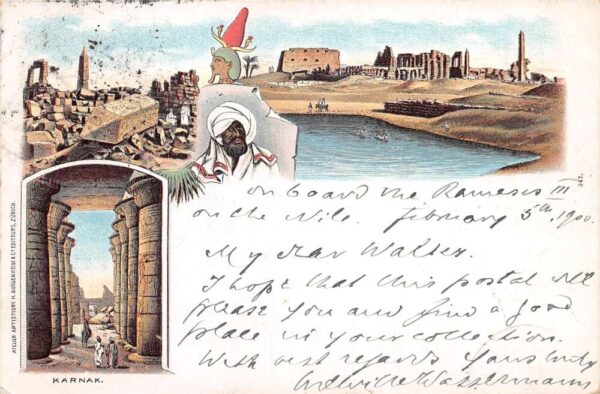 on board the Rameses III
on the Nile. february 5th, 1900.
My dear Walter.
I hope that this postal will
please you and find a good
place in your collection.
With best regards yours truly
Melville Wassermann
KARNAK.
ATELIER ARTISTIQUE H. GUGGENHEIM & Cº EDITEURS, ZÜRICH.
347.